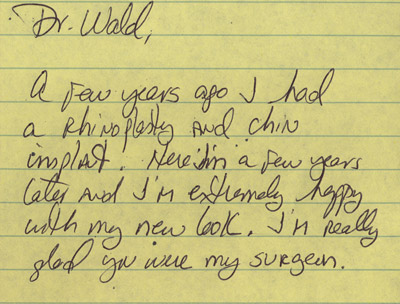 Dr. Wald,
A few years ago I had
a Rhinoplasty and chin
implant. Here I'm a few years
later and I'm extremely happy
with my new look. I'm really
glad you were my surgeon.